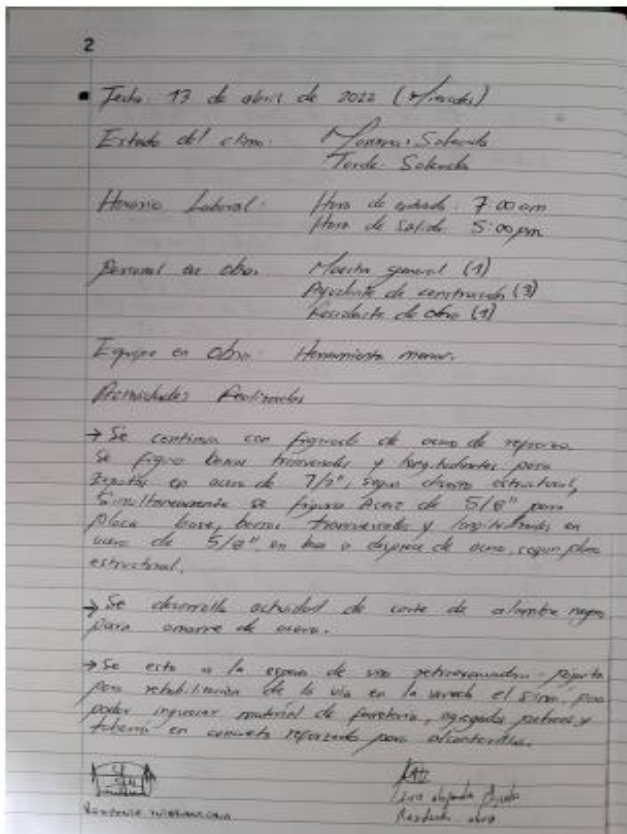 2
Fecha: 13 de abril de 2022 (Miercoles)
Estado del clima: Mañana: Soleada
Tarde: Soleada
Horario Laboral: Hora de entrada: 7:00 am
Hora de salida: 5:00 pm
Personal en obra: Maestro general (1)
Ayudante de construccion (3)
Residente de obra (1)
Equipo en obra: Herramienta menor.
Actividades Realizadas
→ Se continua con figurado de acero de refuerzo.
Se figura barras transversales y longitudinales para
zapatas en acero de 1/2", segun diseño estructural,
Simultaneamente se figura Acero de 5/8" para
placa base, barras transversales y longitudinales en
acero de 5/8", en base a despiece de acero, segun plano
estructural.
→ Se desarrolla actividad de corte de alambre negro
para amarre de acero.
→ Se esta a la espera de una retroexcavadora - pajarita
para rehabilitación de la via en la vereda el sinai, para
poder ingresar material de ferreteria, agregados petreos y
tuberia en concreto reforzado para alcantarillas.
Residente obra